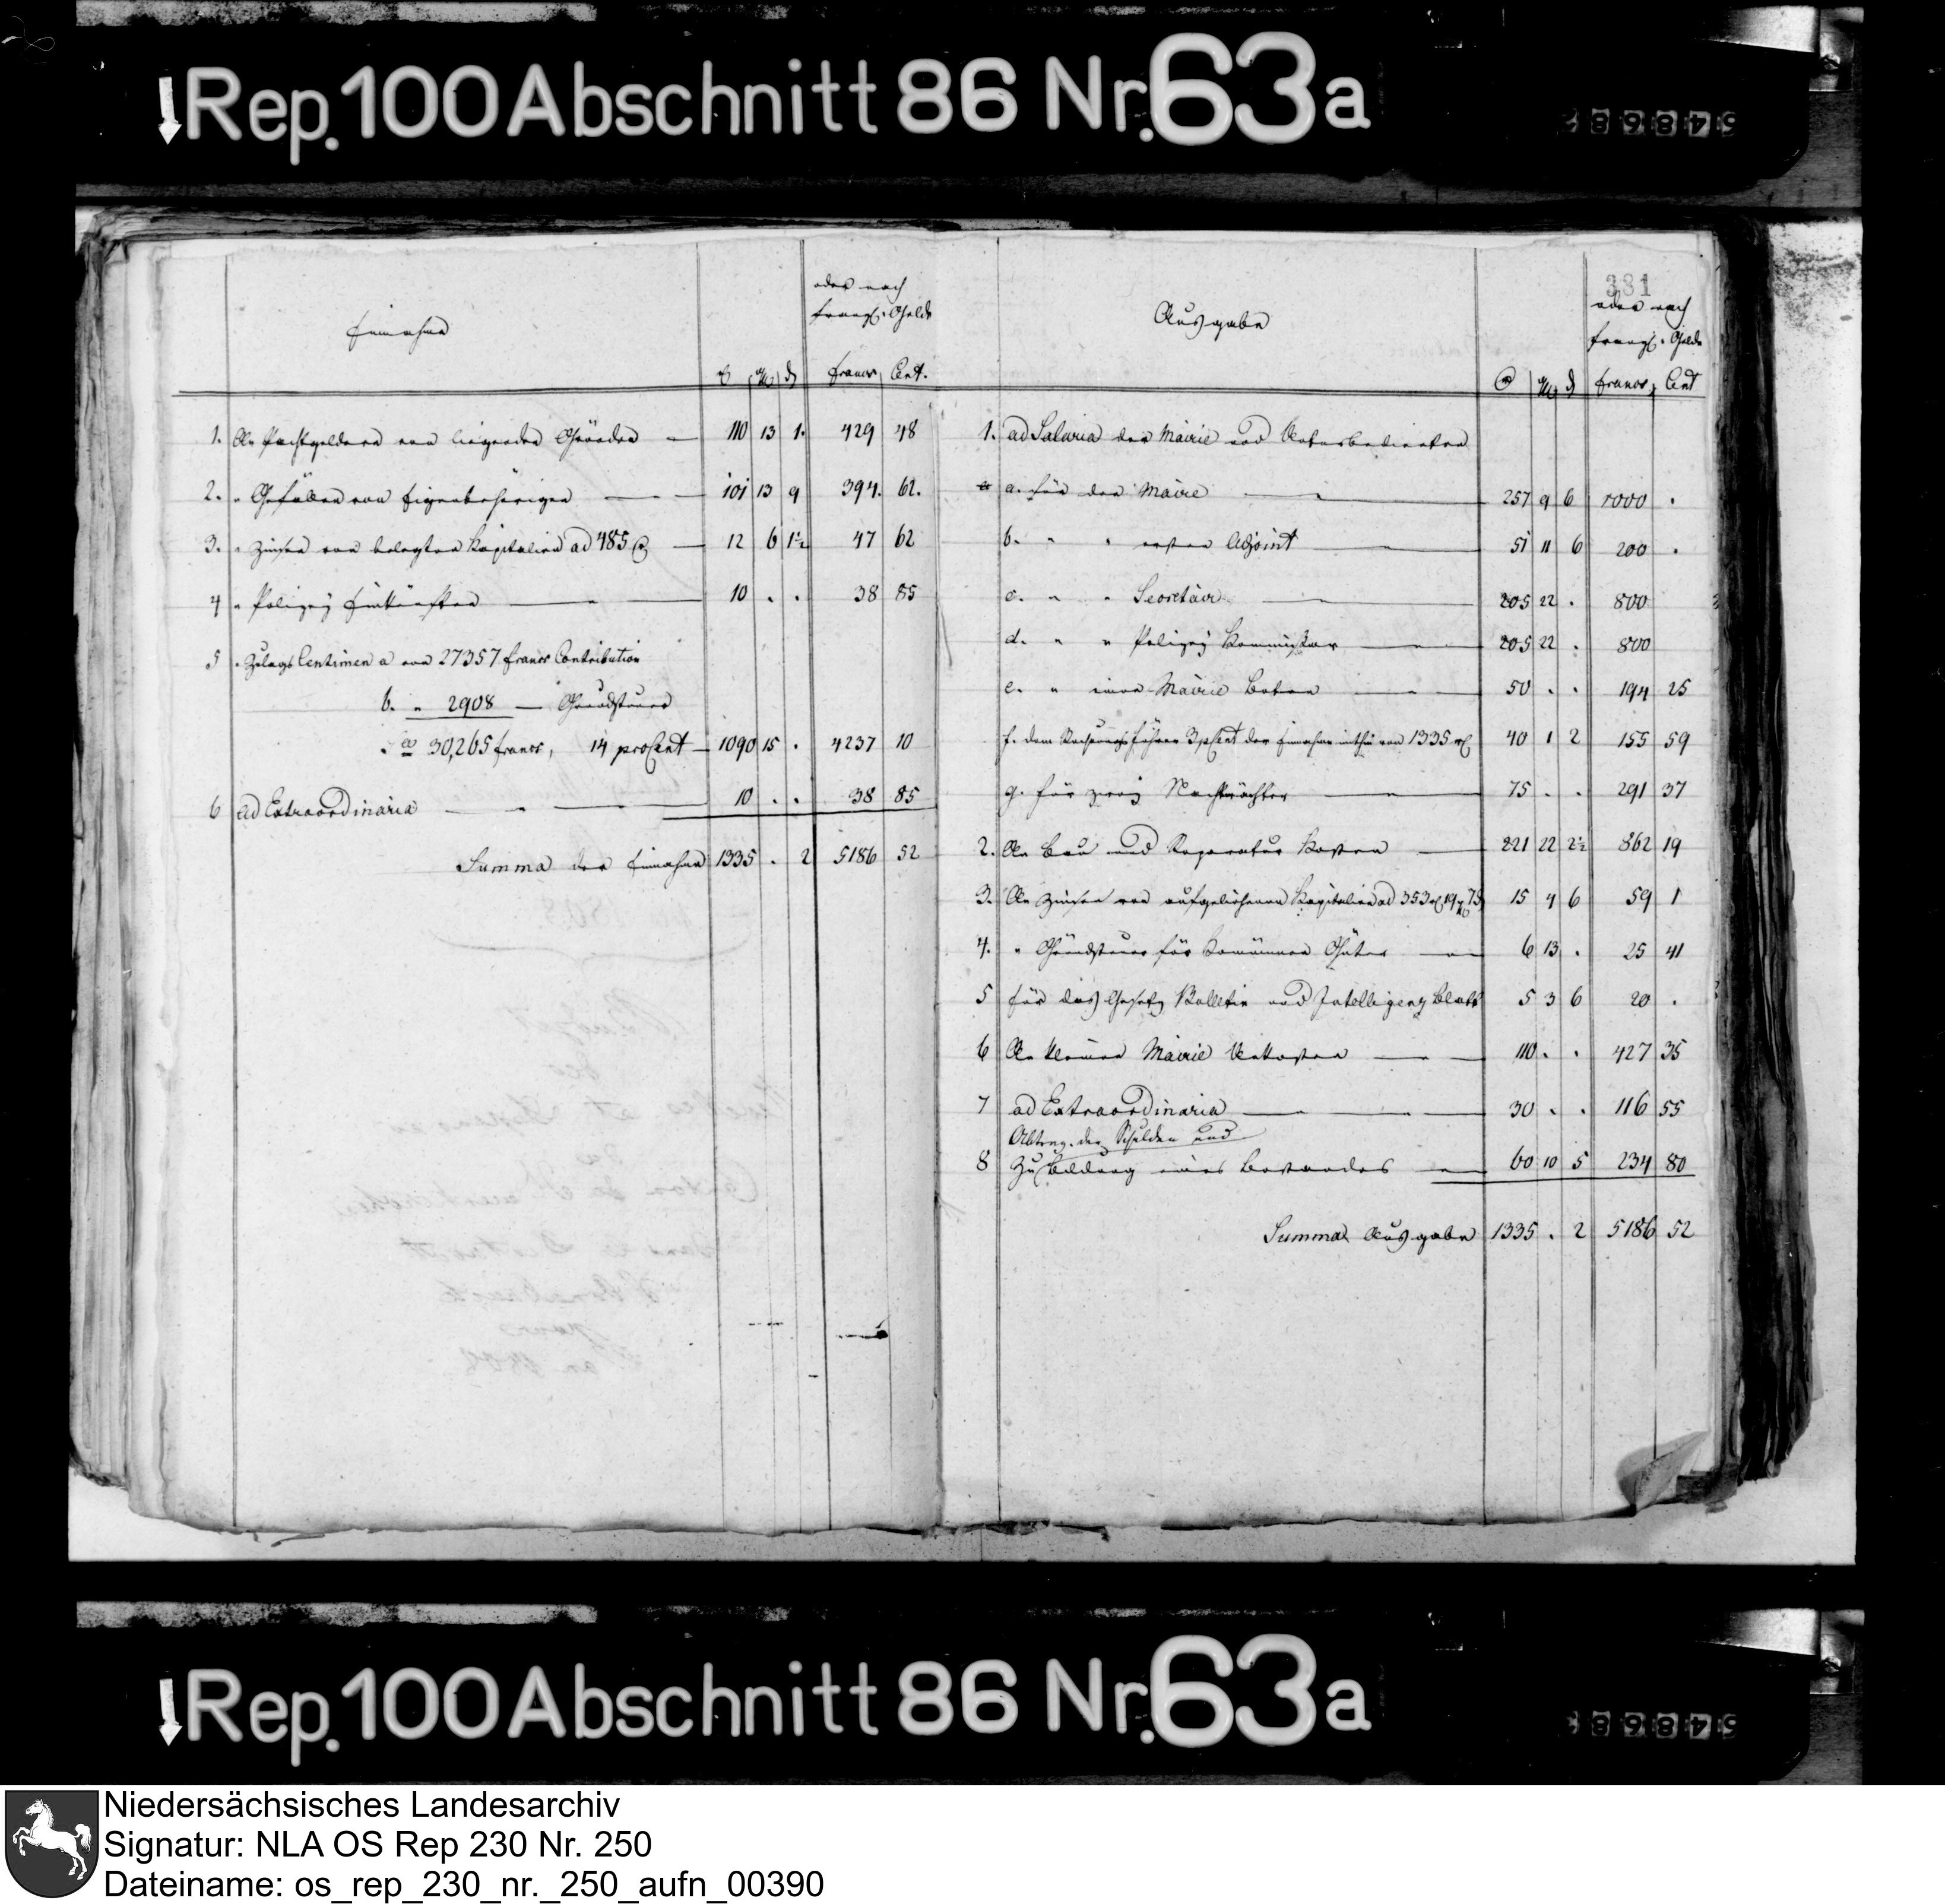 Rep. 100 Abschnitt 86 Nr. 63a
54868
Einnahme
oder nach
franz. Gelde
francs Cent.
1. An Pachtgeldern von liegenden Gründen 110 13 1. 429 48
2. " Gefällen von Eigenbehörigen 101 13 9 394. 62.
3. " Zinsen von belegten Kapitalien ad 485 12 6 1½ 47 62
4 " Polizey Einkünften 10 . . 38 85
5 " Zulags Centimen a von 27357 francs Contribution
b. " 2908 — Grundsteuer
30,265 francs, 14 proCent 1090 15 . 4237 10
6 ad Extraordinaria 10 . . 38 85
Summa der Einnahme 1335 . 2 5186 52
381
Ausgabe
oder nach
franz. Gelde
francs, Cent
1. ad Salaria der Mairie und Unterbedienten
a. für den Maire 257 9 6 1000 .
b. " " ersten Adjoint 51 11 6 200 .
c. " " Secretair 205 22 . 800
d. " " Polizey Kommissar 205 22 . 800
e. " einen Mairie Boten 50 . . 194 25
f. dem Rechnungsführer 3 pCent der Einnahme mithin von 1335 40 1 2 155 59
g. für zwey Nachtwächter 75 . . 291 37
2. An Bau und Reparatur Kosten 221 22 2½ 862 19
3. An Zinsen von aufgeliehenen Kapitalien ad 353 19 7 15 4 6 59 1
4. " Grundsteuer für Communen Güter 6 13 . 25 41
5 für das Gesetz Bulletin und Intelligenz Blatt 5 3 6 20 .
6 An kleinen Mairie Unkosten 110 . . 427 35
7 ad Extraordinaria 30 . . 116 55
Abtrag. der Schulden und
8 Zu Bildung eines Bestandes 60 10 5 234 80
Summa Ausgabe 1335 . 2 5186 52
Rep. 100 Abschnitt 86 Nr. 63a
54868
Niedersächsisches Landesarchiv
Signatur: NLA OS Rep 230 Nr. 250
Dateiname: os_rep_230_nr._250_aufn_00390